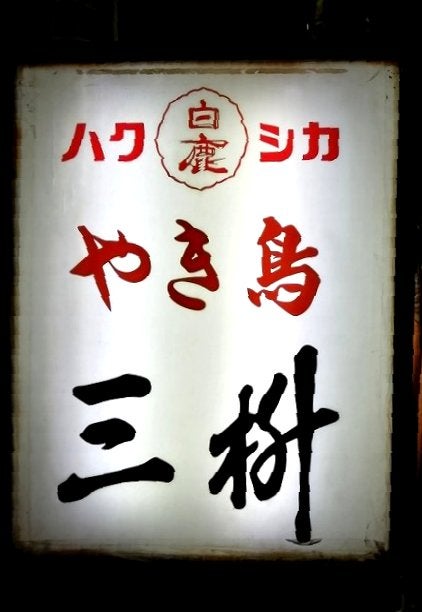 ハク 白鹿 シカ
やき鳥
三桝